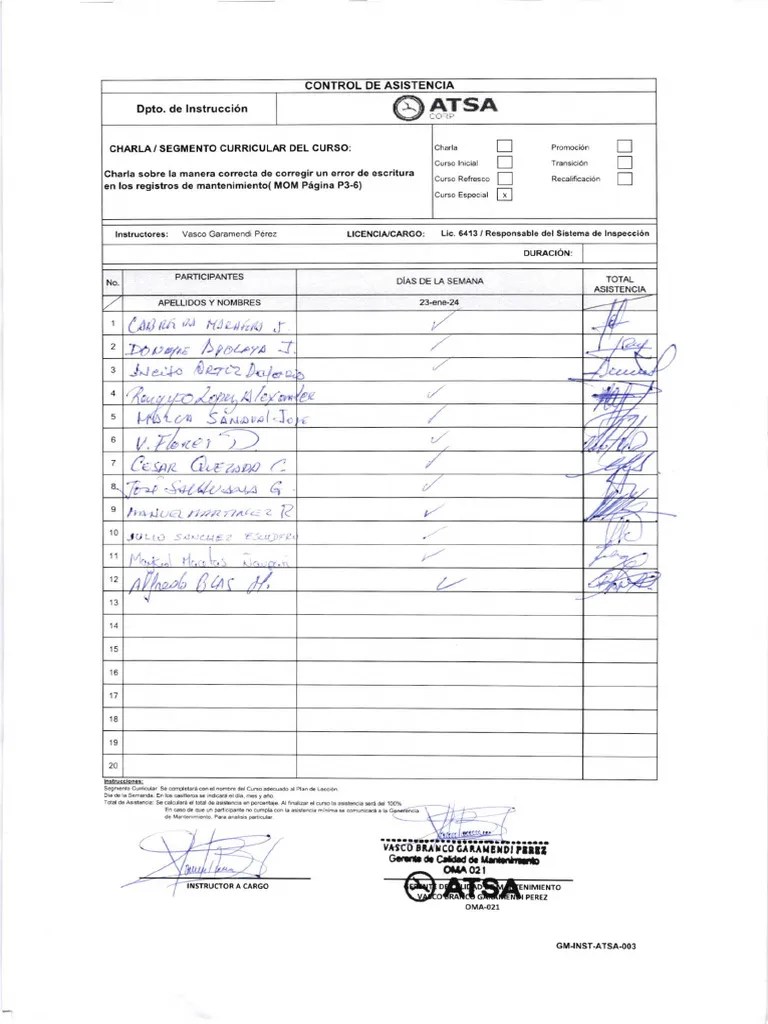 CONTROL DE ASISTENCIA
Dpto. de Instrucción
ATSA
CORP
CHARLA / SEGMENTO CURRICULAR DEL CURSO:
Charla sobre la manera correcta de corregir un error de escritura
en los registros de mantenimiento( MOM Página P3-6)
Charla
Promoción
Curso Inicial
Transición
Curso Refresco
Recalificación
Curso Especial x
Instructores: Vasco Garamendi Pérez LICENCIA/CARGO: Lic. 6413 / Responsable del Sistema de Inspección
DURACIÓN:
No. PARTICIPANTES DÍAS DE LA SEMANA TOTAL
ASISTENCIA
APELLIDOS Y NOMBRES 23-ene-24
1 J.
2 J.
3 ORTIZ
4 Lopez Alexander
5 SANDOVAL Jose
6 V. Flores
7 CESAR QUEZADA C.
8 JOSE G.
9 MANUEL MARTINEZ R
10 JULIO SANCHEZ ESCUDERO
11
12 Alfredo BLAS M.
13
14
15
16
17
18
19
20
Instrucciones:
Segmento Curricular: Se completará con el nombre del Curso adecuado al Plan de Lección.
Día de la Semanda: En los casilleros se indicará el día, mes y año.
Total de Asistencia: Se calculará el total de asistencia en porcentaje. Al finalizar el curso la asistencia será del 100%
En caso de que un participante no cumpla con la asistencia mínima se comunicará a la Gerencia
de Mantenimiento. Para analisis particular.
VASCO BRANCO GARAMENDI PEREZ
Gerente de Calidad de Mantenimiento
OMA 021
ATSA
INSTRUCTOR A CARGO
GERENTE DE CALIDAD DE MANTENIMIENTO
VASCO BRANCO GARAMENDI PEREZ
OMA-021
GM-INST-ATSA-003